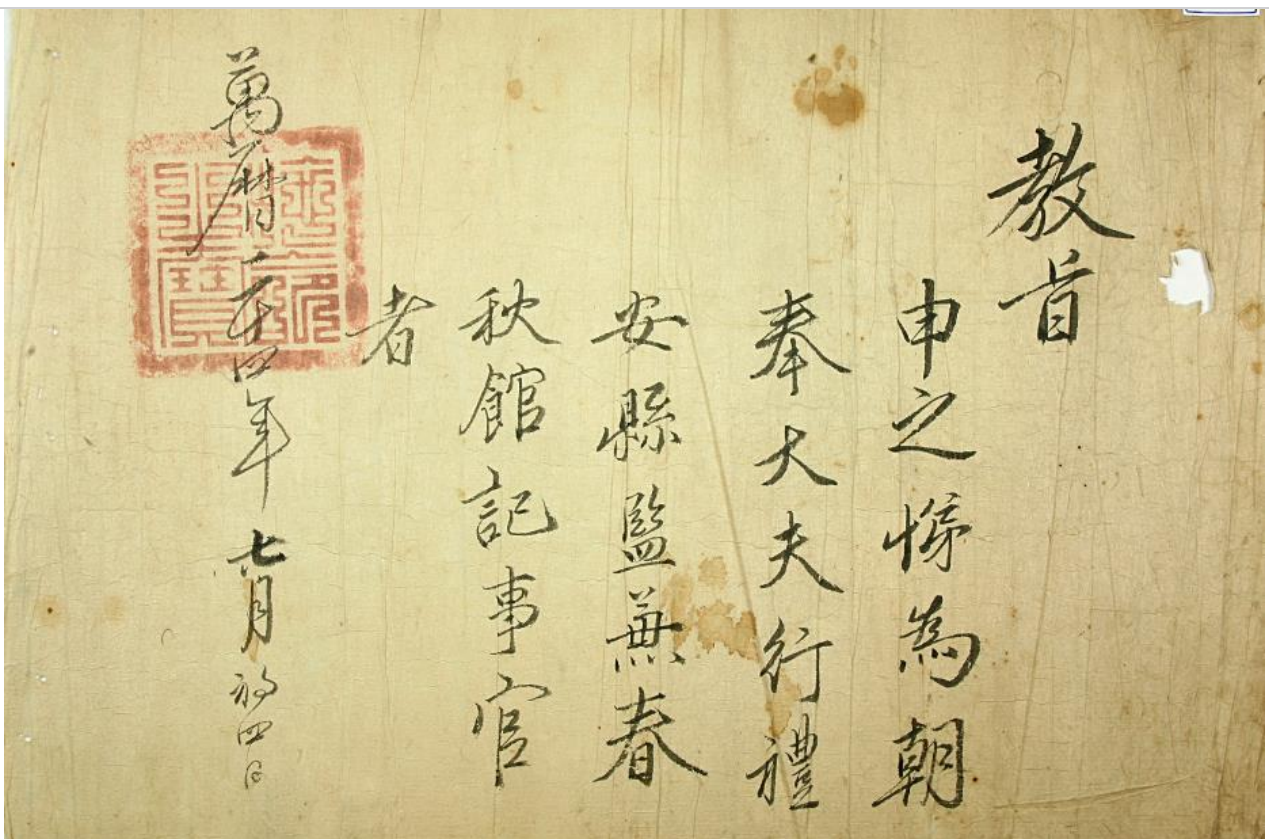 教旨
申之悌為朝
奉大夫行禮
安縣監兼春
秋館記事官
者
萬曆二十四年七月初四日